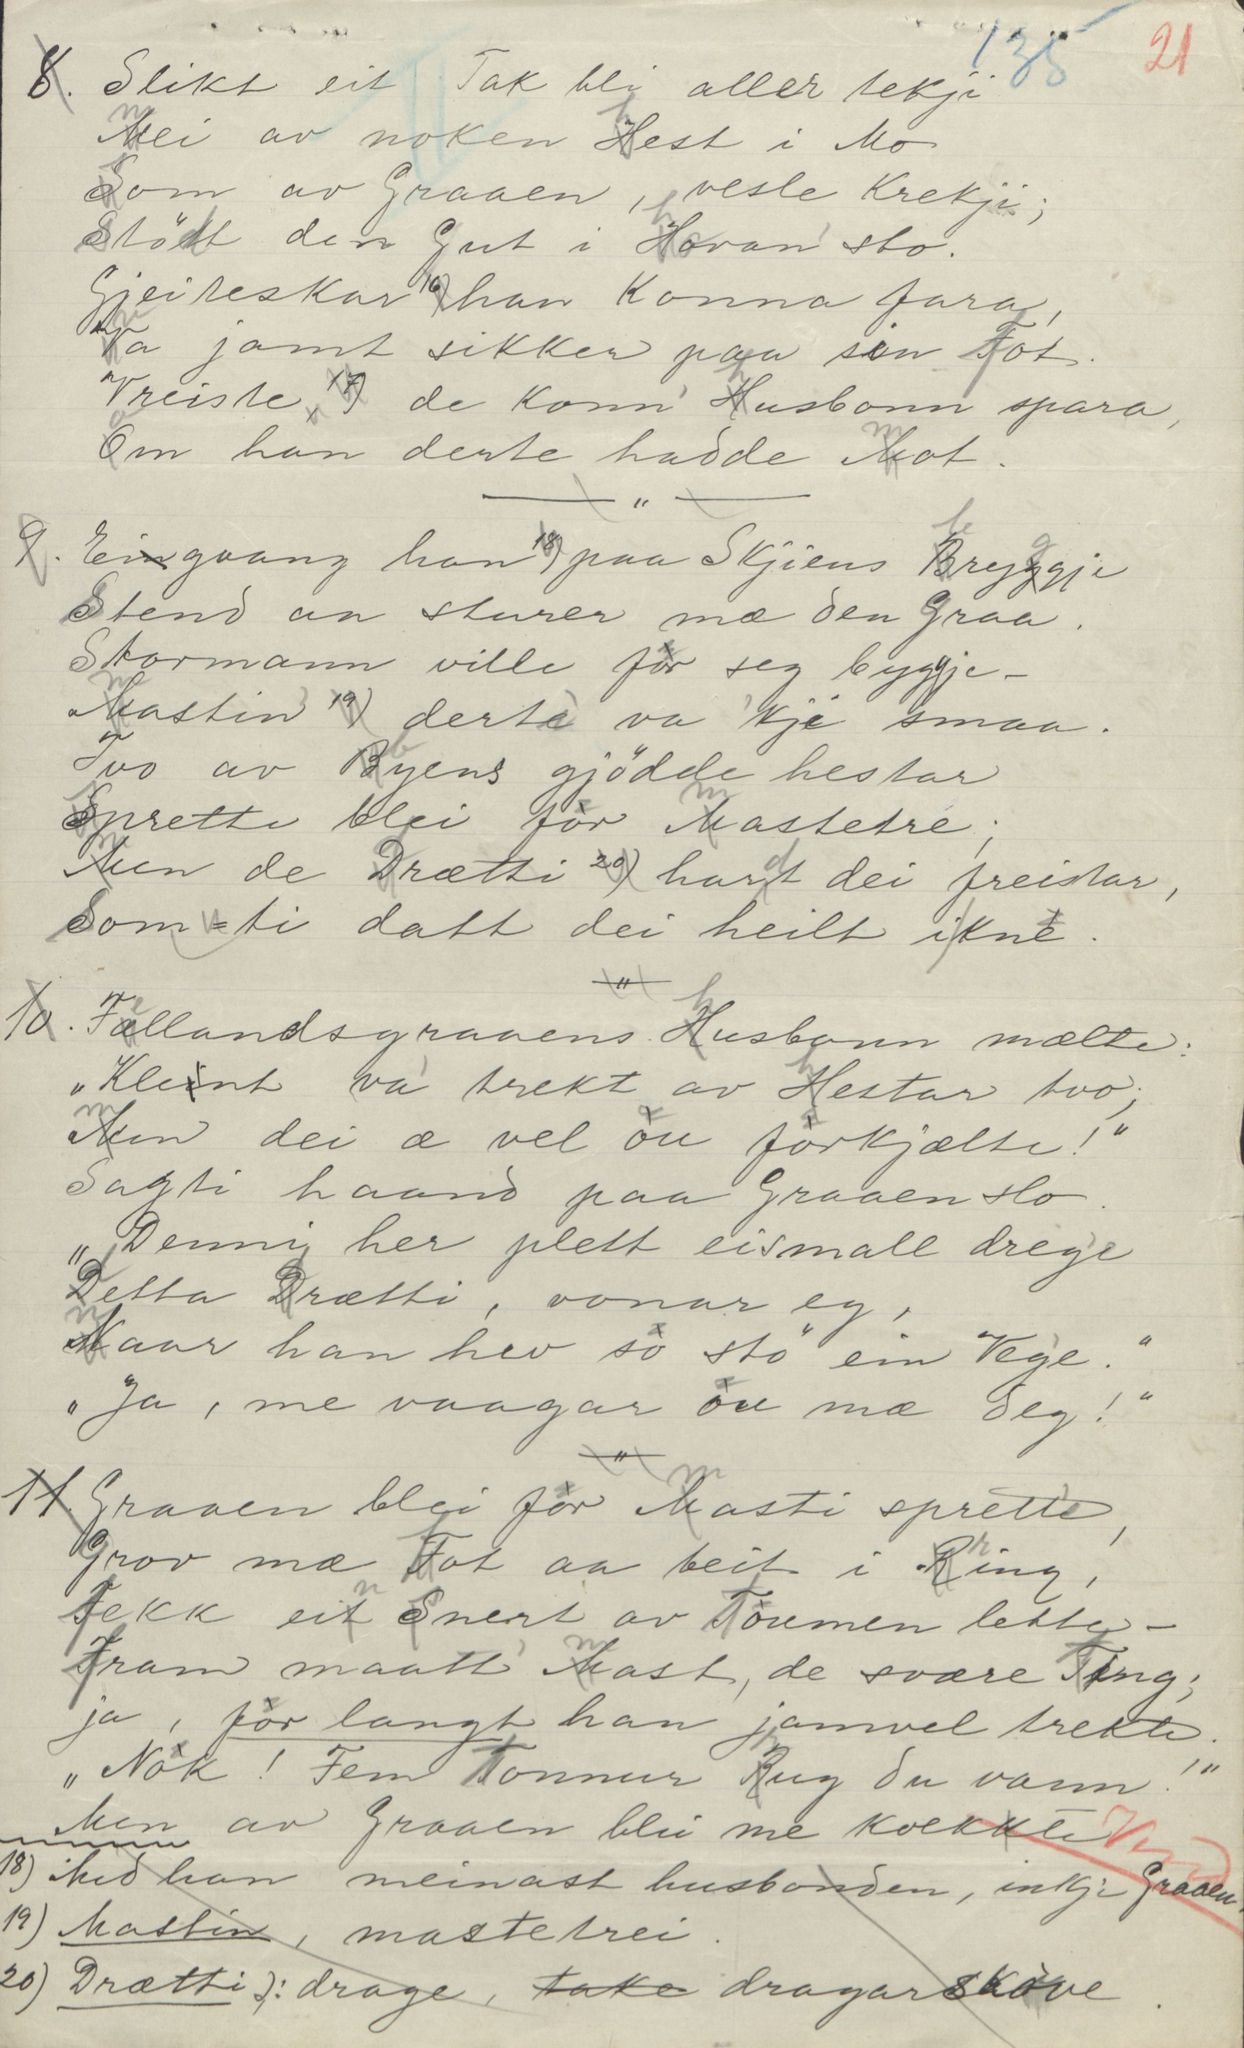 135 21
8. Slikt eit Tak bli aller tekji
Mei av noken Hest i Mo
Som av Graaen, vesle Krekji;
Stödt den Gut i Hovan' sto.
Gjeiteskar 16) han konna fara,
Va jamt sikker paa sin Fot.
Vreiste 17) de konn' Husbonn spara,
Om han derte hadde Mot.
"
9. Eingvang han 18) paa Skjiens Bryggje
Stend an sturer mæ den Graa.
Stormann ville för seg byggje –
Mastin' 19) derte va 'kje smaa.
Tvo av Byens gjödde hestar
Sprette blei för Mastetre;
Men de Drætti 20) hardt dei freistar,
Som-ti datt dei heilt ikne.
"
10. Fællandsgraaens Husbonn mælte:
"Kleint va' trekt av Hestar tvo;
Men dei æ vel öu förkjælte!"
Sagti haand paa Graaen slo.
"Denni her plett eismall drege
Detta Drætti, vonar eg,
Naar han hev so stö ein Vege."
"Ja, me vaagar öu mæ deg!"
"
11. Graaen blei för Masti sprette,
Grov mæ Fot aa beit i Ring,
Fekk eit Snert av Toumen lette –
Fram maatt' Mast, de svære Ting;
ja, för langt han jamvel trekte.
"Nok! Fem Tonnur Rug du vann!"
Men av Graaen blei me kvekkte
Vend
18) Med han meinast husbonden, inkje Graaen.
19) Mastin, mastetrei.
20) Drætti ɔ: drage, take dragarskove.